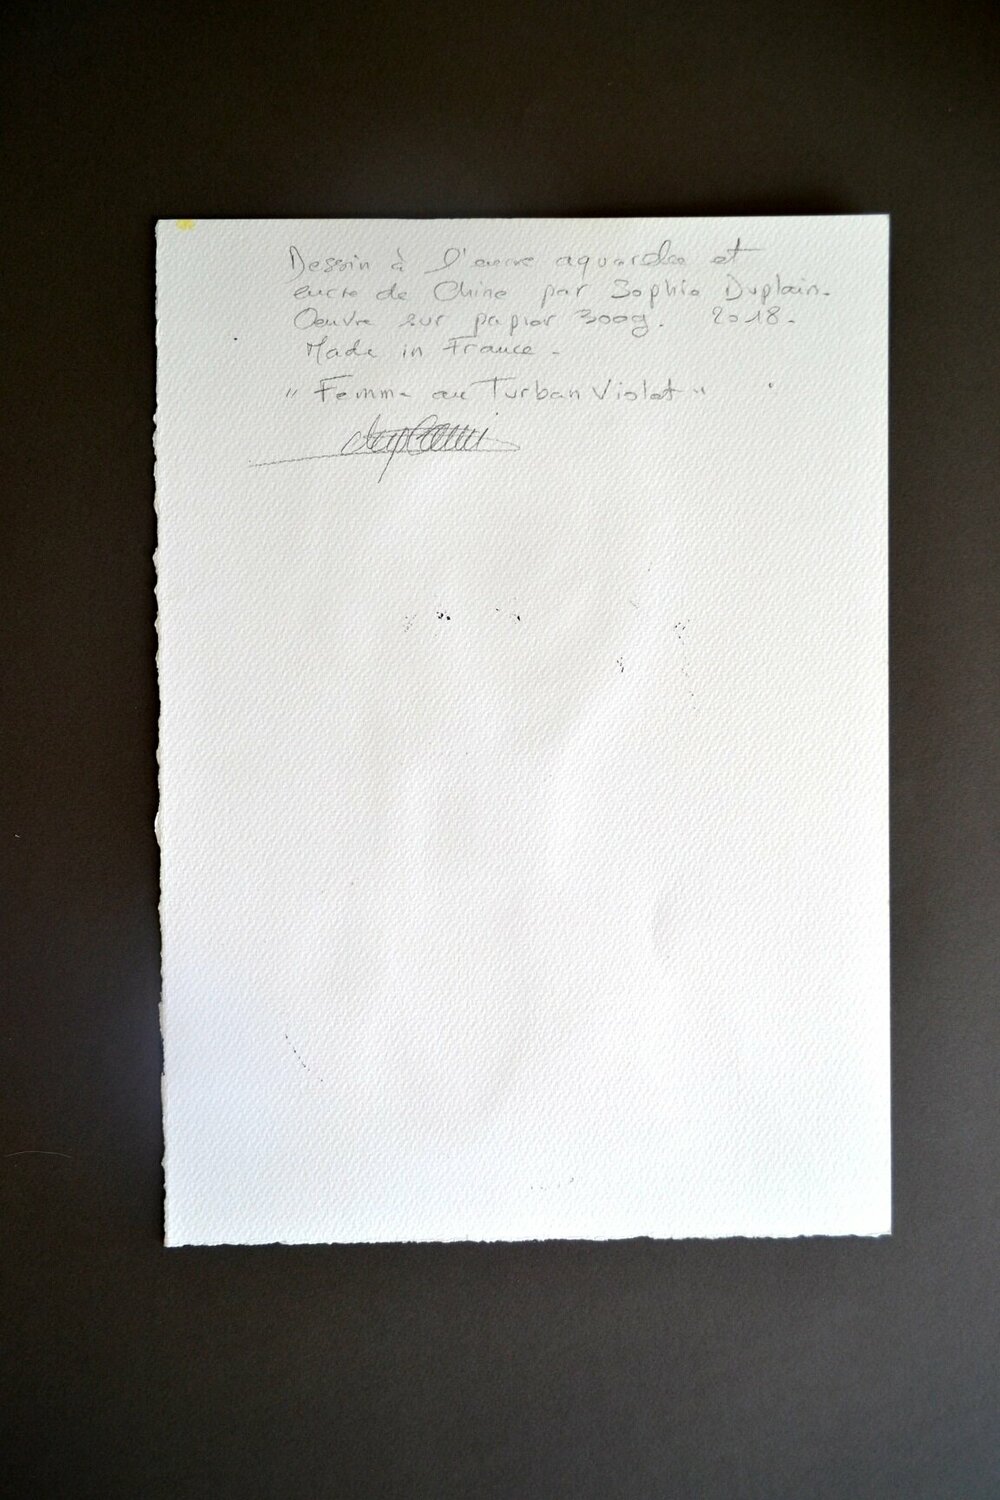 Dessin à l'encre aquarelle et
encre de Chine par Sophie Duplain.
Oeuvre sur papier 300g. 2018.
Made in France.
"Femme au Turban Violet"
duplain